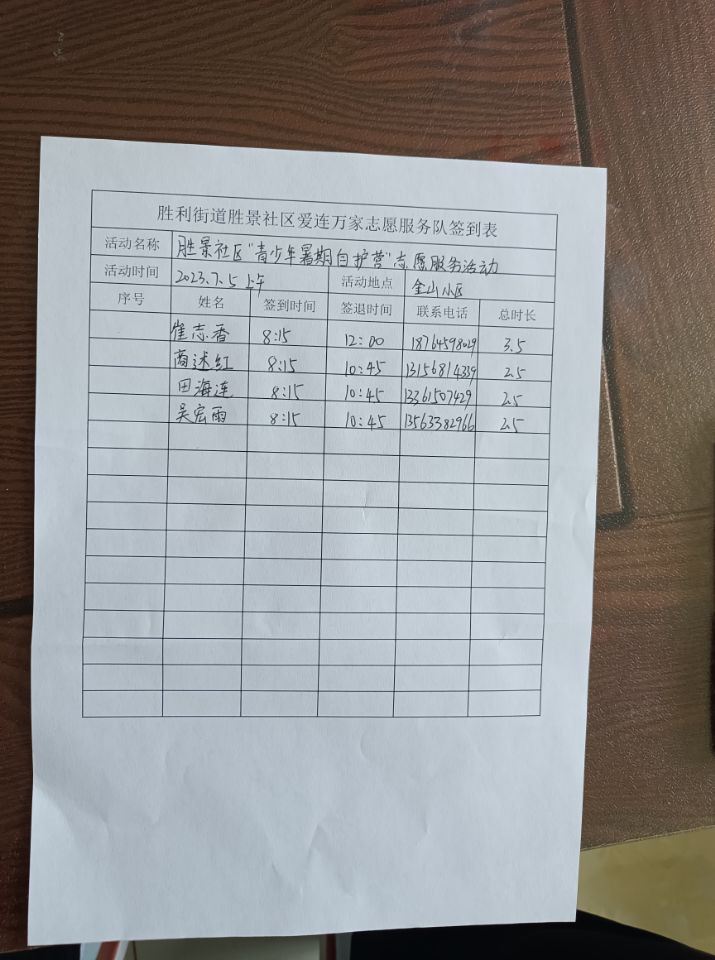 胜利街道胜景社区爱连万家志愿服务队签到表
活动名称 胜景社区"青少年暑期自护营"志愿服务活动
活动时间 2023.7.5上午 活动地点 金山小区
序号 姓名 签到时间 签退时间 联系电话 总时长
崔志香 8:15 12:00 18764598029 3.5
商述红 8:15 10:45 13156814339 2.5
田海连 8:15 10:45 13361507429 2.5
吴宏雨 8:15 10:45 13563382966 2.5